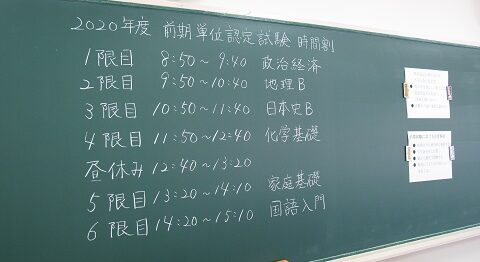 2020年度 前期単位認定試験 時間割
1限目 8:50～9:40 政治経済
2限目 9:50～10:40 地理B
3限目 10:50～11:40 日本史B
4限目 11:50～12:40 化学基礎
昼休み 12:40～13:20
5限目 13:20～14:10 家庭基礎
6限目 14:20～15:10 国語入門